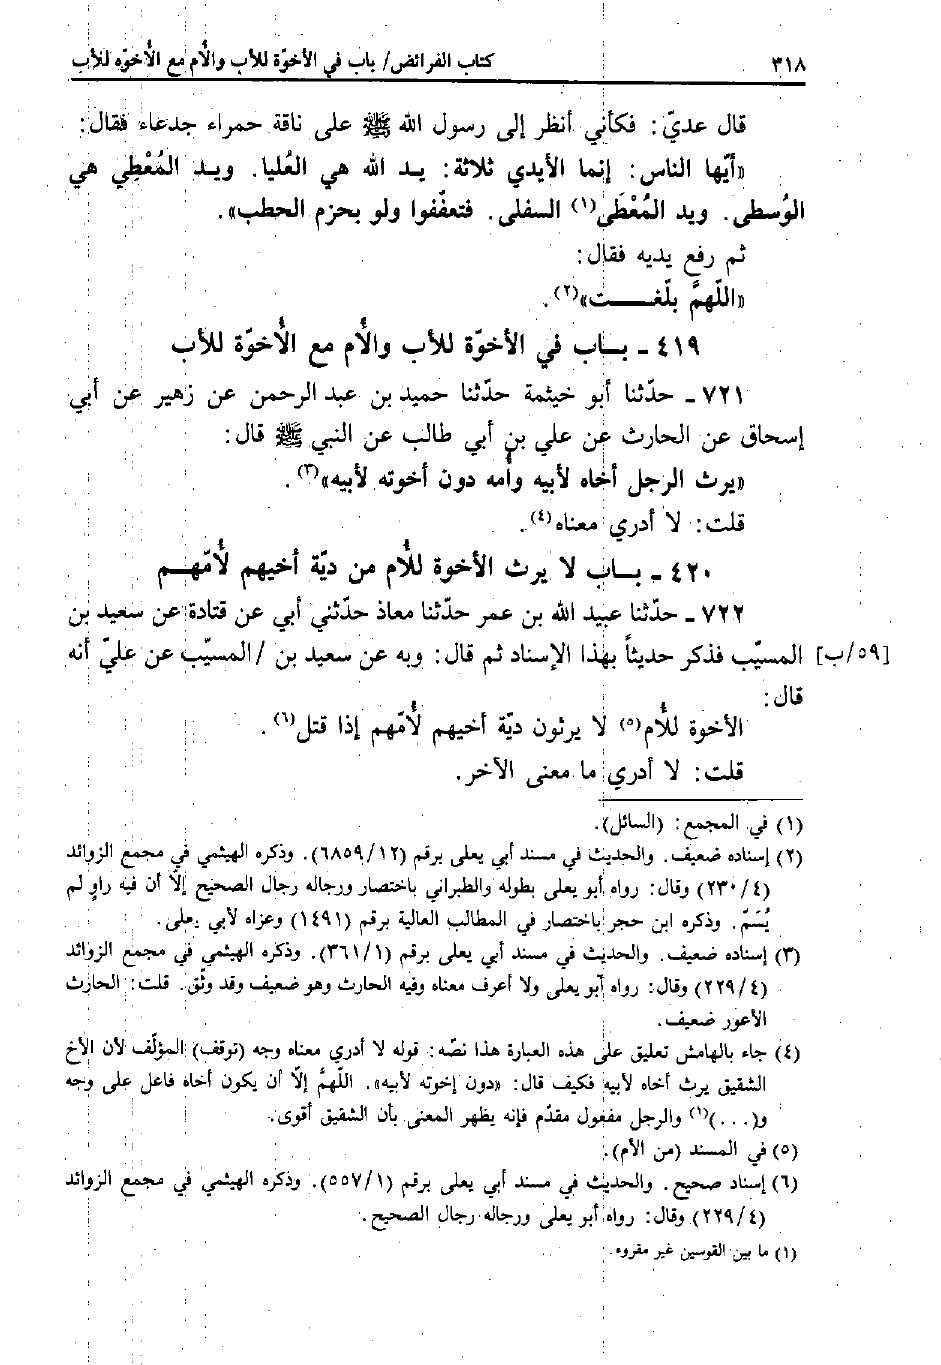 ٣١٨ كتاب الفرائض/ باب في الأخوّة للأب والأُم مع الأخوّه للأب
قال عديّ: فكأني أنظر إلى رسول الله ﷺ على ناقة حمراء جدعاء فقال:
«أيّها الناس: إنما الأيدي ثلاثة: يد الله هي العُليا. ويد المُعْطِي هي
الوُسطى. ويد المُعْطَى(١) السفلى. فتعفّفوا ولو بحزم الحطب».
ثم رفع يديه فقال:
«اللّهمَّ بلّغـت»(٢).
٤١٩ - بـاب في الأخوّة للأب والأُم مع الأخوّة للأب
٧٢١ - حدّثنا أبو خيثمة حدّثنا حميد بن عبد الرحمن عن زهير عن أبي
إسحاق عن الحارث عن علي بن أبي طالب عن النبي ﷺ قال:
«يرث الرجل أخاه لأبيه وأُمه دون أخوته لأبيه»(٣).
قلت: لا أدري معناه(٤).
٤٢٠ - بـاب لا يرث الأخوة للأُم من ديّة أخيهم لأُمّهـم
٧٢٢ - حدّثنا عبيد الله بن عمر حدّثنا معاذ حدّثني أبي عن قتادة عن سعيد بن
[٥٩/ب] المسيّب فذكر حديثاً بهذا الإسناد ثم قال: وبه عن سعيد بن /المسيّب عن عليّ أنه
قال:
الأخوة للأُم(٥) لا يرثون ديّة أخيهم لأُمّهم إذا قتل(٦).
قلت: لا أدري ما معنى الآخر.
(١) في المجمع: (السائل).
(٢) إسناده ضعيف. والحديث في مسند أبي يعلى برقم (٦٨٥٩/١٢). وذكره الهيثمي في مجمع الزوائد
(٢٣٠/٤) وقال: رواه أبو يعلى بطوله والطبراني باختصار ورجاله رجال الصحيح إلّا أن فيه راوٍ لم
يُسَمّ. وذكره ابن حجر باختصار في المطالب العالية برقم (١٤٩١) وعزاه لأبي يعلى.
(٣) إسناده ضعيف. والحديث في مسند أبي يعلى برقم (٣٦١/١). وذكره الهيثمي في مجمع الزوائد
(٢٢٩/٤) وقال: رواه أبو يعلى ولا أعرف معناه وفيه الحارث وهو ضعيف وقد وثّق. قلت: الحارث
الأعور ضعيف.
(٤) جاء بالهامش تعليق على هذه العبارة هذا نصّه: قوله لا أدري معناه وجه (توقف) المؤلّف لأن الأخ
الشقيق يرث أخاه لأبيه فكيف قال: «دون إخوته لأبيه». اللّهمَّ إلّا أن يكون أخاه فاعل على وجه
و(. . .)(١) والرجل مفعول مقدّم فإنه يظهر المعنى بأن الشقيق أقوى.
(٥) في المسند (من الأم).
(٦) إسناد صحيح. والحديث في مسند أبي يعلى برقم (٥٥٧/١). وذكره الهيثمي في مجمع الزوائد
(٢٢٩/٤) وقال: رواه أبو يعلى ورجاله رجال الصحيح.
(١) ما بين القوسين غير مقروء.